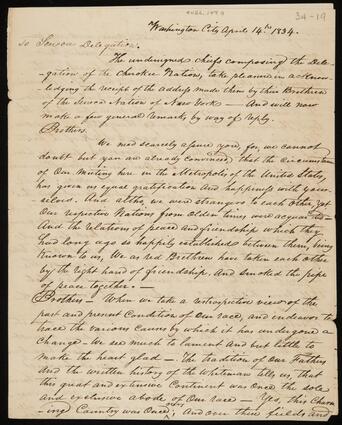 34-19
Washington City April 14th 1834.
To Seneca Delegation.
The undersigned chiefs composing the Dele-
gation of the Cherokee Nation, take pleasure in acknow-
ledging the receipt of the address made them by their Brethren
of the Seneca Nation of New York — And will now
make a few general remarks by way of reply.
Brothers.
We need scarcely assure you, for we cannot
doubt but you are already convinced, that the circumstance
of Our meeting here in the Metropolis of the United States,
has given us equal gratification and happiness with your-
selves. And altho, we were strangers to each other, yet
Our respective Nations from Olden times were acquainted —
And the relations of peace and friendship which they
had long ago so happily established between them, being
Known to us, We as red Brethren have taken each other
by the right hand of friendship, and smoked the pipe
of peace together. —
Brothers — When we take a retrospective view of the
past and present Condition of Our race, and endeavor to
trace the various Causes by which it has undergone a
Change — We see much to lament and but little to
make the heart glad — The tradition of Our Fathers
and the written history of the Whiteman tells us, that
this great and extensive Continent was Once the sole
and exclusive abode of Our race — Yes, this Charm-
ing Country was Once ours, And over these fields and